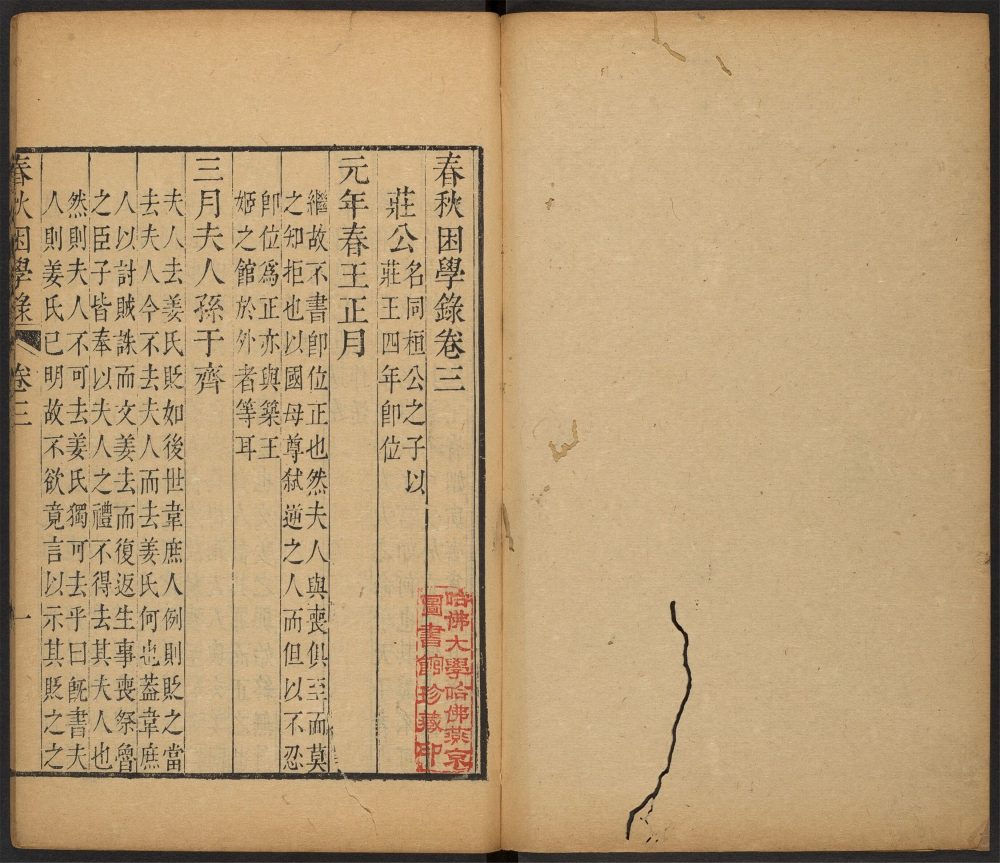 春秋困學錄卷三
莊公名同桓公之子以
莊王四年卽位
元年春王正月
繼故不書卽位正也然夫人與喪俱至而莫
之知拒也以國母尊弑逆之人而但以不忍
卽位爲正亦與築王
姬之館於外者等耳
三月夫人孫于齊
夫人去姜氏貶如後世韋庶人例則貶之當
去夫人今不去夫人而去姜氏何也蓋韋庶
人以討賊誅而文姜去而復返生事喪祭魯
之臣子皆奉以夫人之禮不得去其夫人也
然則夫人不可去姜氏獨可去乎曰旣書夫
人則姜氏已明故不欲竟言以示其貶之之
春秋困學錄 卷三 一
哈佛大學哈佛燕京
圖書館珍藏印